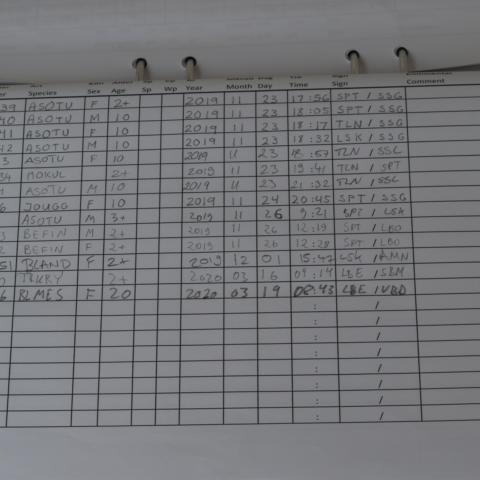 Species Sex Age Sp Wp Year Month Day Time Sign Comment
39 ASOTU F 2+ 2019 11 23 17:56 SPT / SSG
40 ASOTU M 10 2019 11 23 18:05 SPT / SSG
41 ASOTU F 10 2019 11 23 18:17 TLN / SSG
42 ASOTU M 10 2019 11 23 18:32 LSK / SSG
3 ASOTU F 10 2019 11 23 18:57 TLN / SSL
34 MOKUL 2+ 2019 11 23 19:41 TLN / SPT
ASOTU M 10 2019 11 23 21:32 TLN / SSL
6 JOUGG F 10 2019 11 24 20:45 SPT / SSG
ASOTU M 3+ 2019 11 26 9:21 SPT / LSK
3 BEFIN M 2+ 2019 11 26 12:19 SPT / LBO
2 BEFIN F 2+ 2019 11 26 12:28 SPT / LBO
51 BLAND F 2+ 2019 12 01 15:42 LSK / AMN
2+ 2020 03 16 09:14 LBE / SBM
6 BLMES F 20 2020 03 19 08:43 LBE / VBD
: /
: /
: /
: /
: /
: /
: /
: /